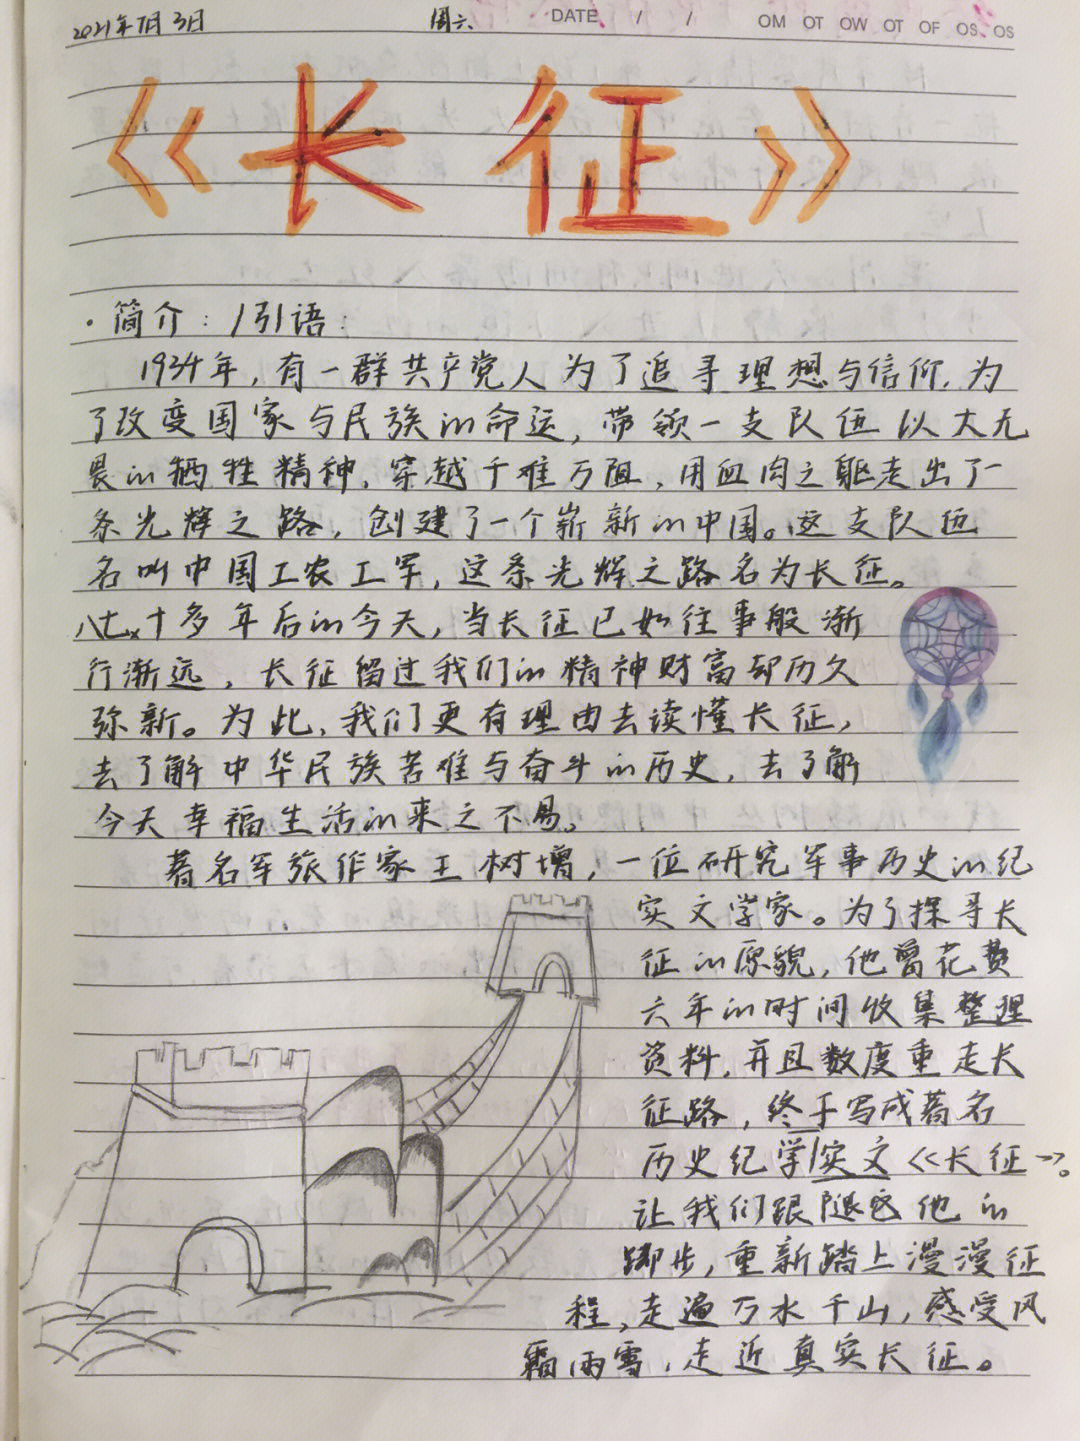 2021年7月3日 周六 DATE / / OM OT OW OT OF OS OS
《长征》
·简介：/引语：
1934年，有一群共产党人为了追寻理想与信仰，为
了改变国家与民族的命运，带领一支队伍以大无
畏的牺牲精神，穿越千难万阻，用血肉之躯走出了一
条光辉之路，创建了一个崭新的中国。这支队伍
名叫中国工农工军，这条光辉之路名为长征。
八七十多年后的今天，当长征已如往事般渐
行渐远，长征留过我们的精神财富却历久
弥新。为此，我们更有理由去读懂长征，
去了解中华民族苦难与奋斗的历史，去了解
今天幸福生活的来之不易。
著名军旅作家王树增，一位研究军事历史的纪
实文学家。为了探寻长
征的原貌，他曾花费
六年的时间收集整理
资料，并且数度重走长
征路，终于写成著名
历史纪学/实文《长征》。
让我们跟随他的
脚步，重新踏上漫漫征
程，走遍万水千山，感受风
霜雨雪，走近真实长征。